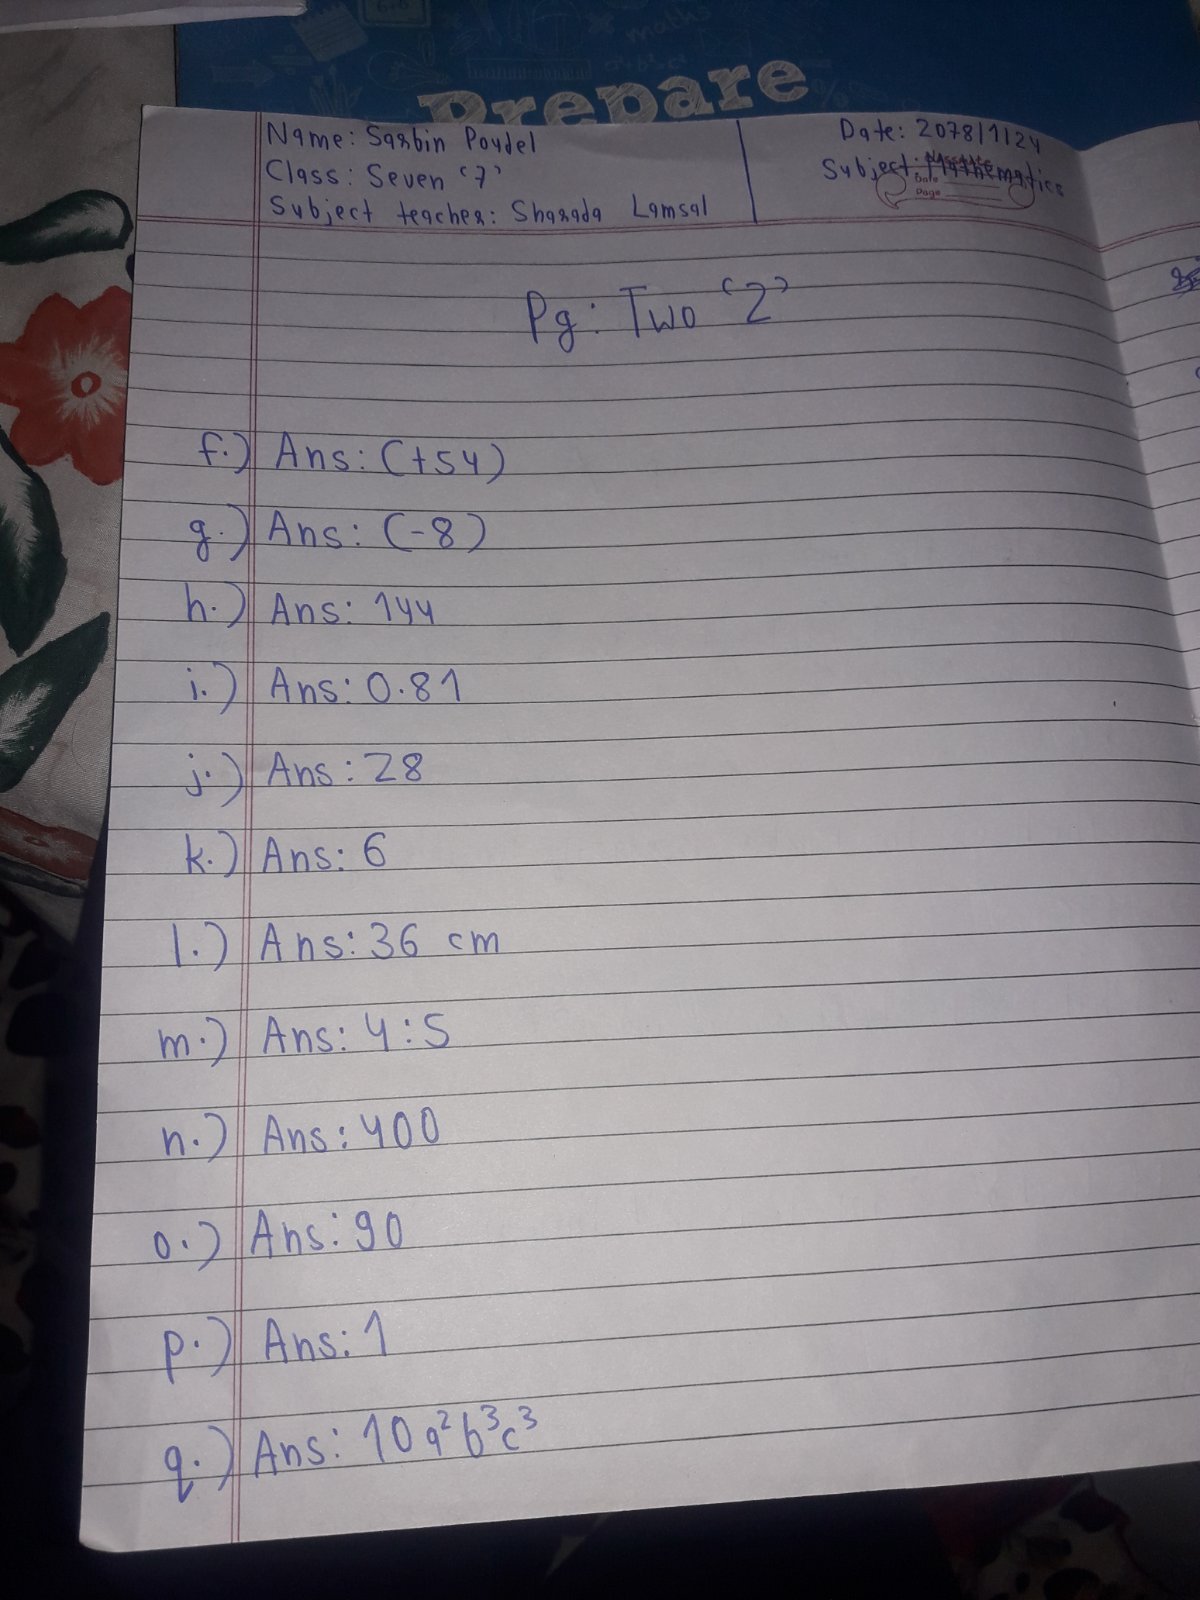 Prepare
Name: Sarbin Poudel
Class: Seven '7'
Subject teacher: Sharada Lamsal
Date: 2078/1/24
Subject: Mathematics
Date
Page
Pg: Two '2'
f.) Ans: (+54)
g.) Ans: (-8)
h.) Ans: 144
i.) Ans: 0.81
j.) Ans: 28
k.) Ans: 6
l.) Ans: 36 cm
m.) Ans: 4:5
n.) Ans: 400
o.) Ans: 90
p.) Ans: 1
q.) Ans: 10a²b³c³